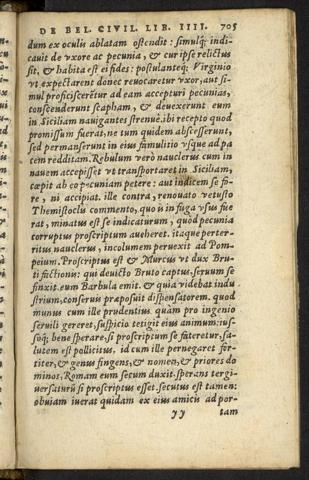 DE BEL. CIVIL. LIB. IIII. 705
dum ex oculis ablatam ostendit: simulq́; indi-
cauit de vxore ac pecunia, & cur ipse relictus
sit, & habita est ei fides: postulanteq́; Virginio
vt expectarent donec reuocaretur vxor, aut si-
mul proficiscerẽtur ad eam accepturi pecunias,
conscenderunt scapham, & deuexerunt eum
in Siciliam nauigantes strenuè. ibi recepto quod
promissum fuerat, ne tum quidem abscesserunt,
sed permanserunt in eius famulitio vsque ad pa
cem redditam. Rebulum verò nauclerus cum in
nauem accepisset vt transportaret in Siciliam,
cœpit ab eo pecuniam petere: aut indicem se fo-
re, ni accipiat. ille contra, renouato vetusto
Themistoclis commento, quo is in fuga vsus fue
rat, minatus est se indicaturum, quòd pecunia
corruptus proscriptum aueheret. itaque perter-
ritus nauclerus, incolumem peruexit ad Pom-
peium. Proscriptus est & Murcus vt dux Bru-
ti factionis: qui deuicto Bruto captus, seruum se
finxit. eum Barbula emit. & quia videbat indu
strium, conseruis præposuit dispensatorem. quod
munus cum ille prudentius quàm pro ingenio
seruili gereret, suspicio tetigit eius animum: ius-
soq́; bene sperare, si proscriptum se fateretur, sa-
lutem est pollicitus. id cum ille pernegaret for-
titer, & genus fingens, & nomen, & priores do
minos, Romam eum secum duxit. sperans tergi-
uersaturũ si proscriptus esset. secutus est tamen:
obuiam iuerat quidam ex eius amicis ad por-
yy tam